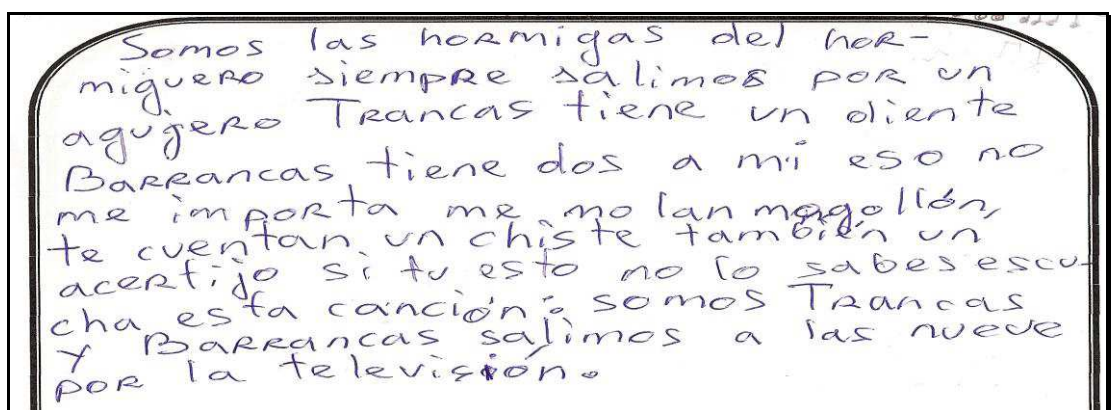 Somos las hormigas del hor-
miguero siempre salimos por un
agujero Trancas tiene un diente
Barrancas tiene dos a mi eso no
me importa me molan mogollón,
te cuentan un chiste también un
acertijo si tu esto no lo sabes escu-
cha esta canción: somos Trancas
y Barrancas salimos a las nueve
por la televisión.